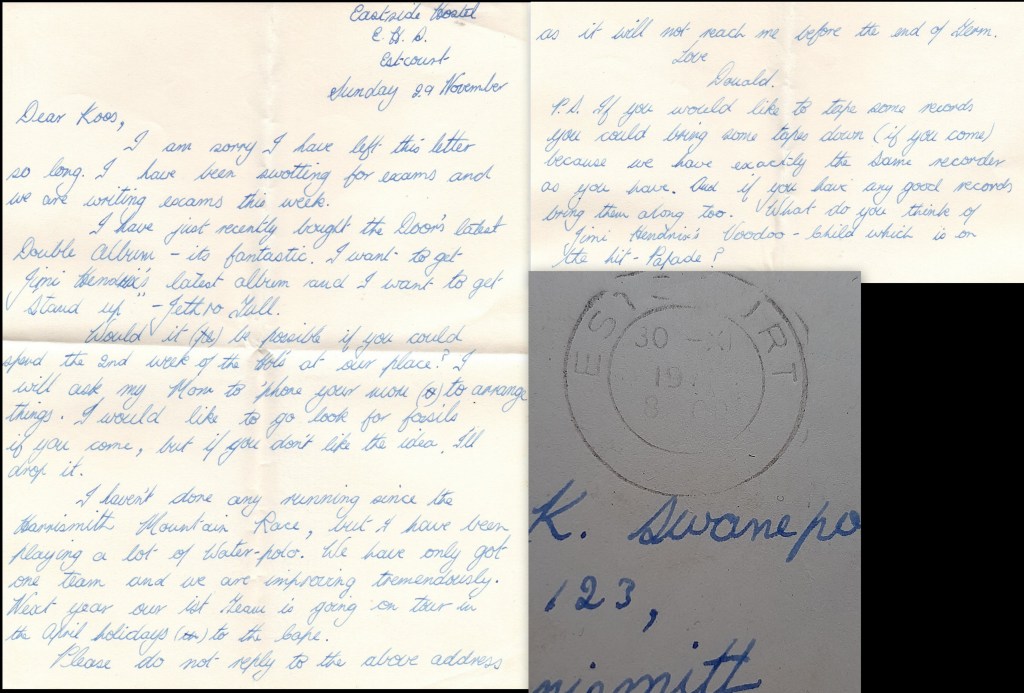 Eastside Hostel
E. H. S.
Estcourt
Sunday 29 November
Dear Koos,
I am sorry I have left this letter
so long. I have been swotting for exams and
we are writing exams this week.
I have just recently bought the Door's latest
Double Album - its fantastic. I want to get
Jimi Hendrix's latest album and I want to get
"Stand up" - Jethro Tull.
Would it (be) be possible if you could
spend the 2nd week of the Hols at our place? I
will ask my Mom to 'phone your mom (a) to arrange
things. I would like to go look for fossils
if you come, but if you don't like the idea, I'll
drop it.
I haven't done any running since the
Harrismith Mountain Race, but I have been
playing a lot of Water-polo. We have only got
one team and we are improving tremendously.
Next year our 1st Team is going on tour in
the April holidays to the Cape.
Please do not reply to the above address
as it will not reach me before the end of Term.
Love
Donald.
P.S. If you would like to tape some records
you could bring some tapes down (if you come)
because we have exackly the same recorder
as you have. And if you have any good records
bring them along too. What do you think of
Jimi Hendrix's Voodoo-Child which is on
the hit-Parade?
30 -XI
19
8
K. Swanepo
123,
rismith